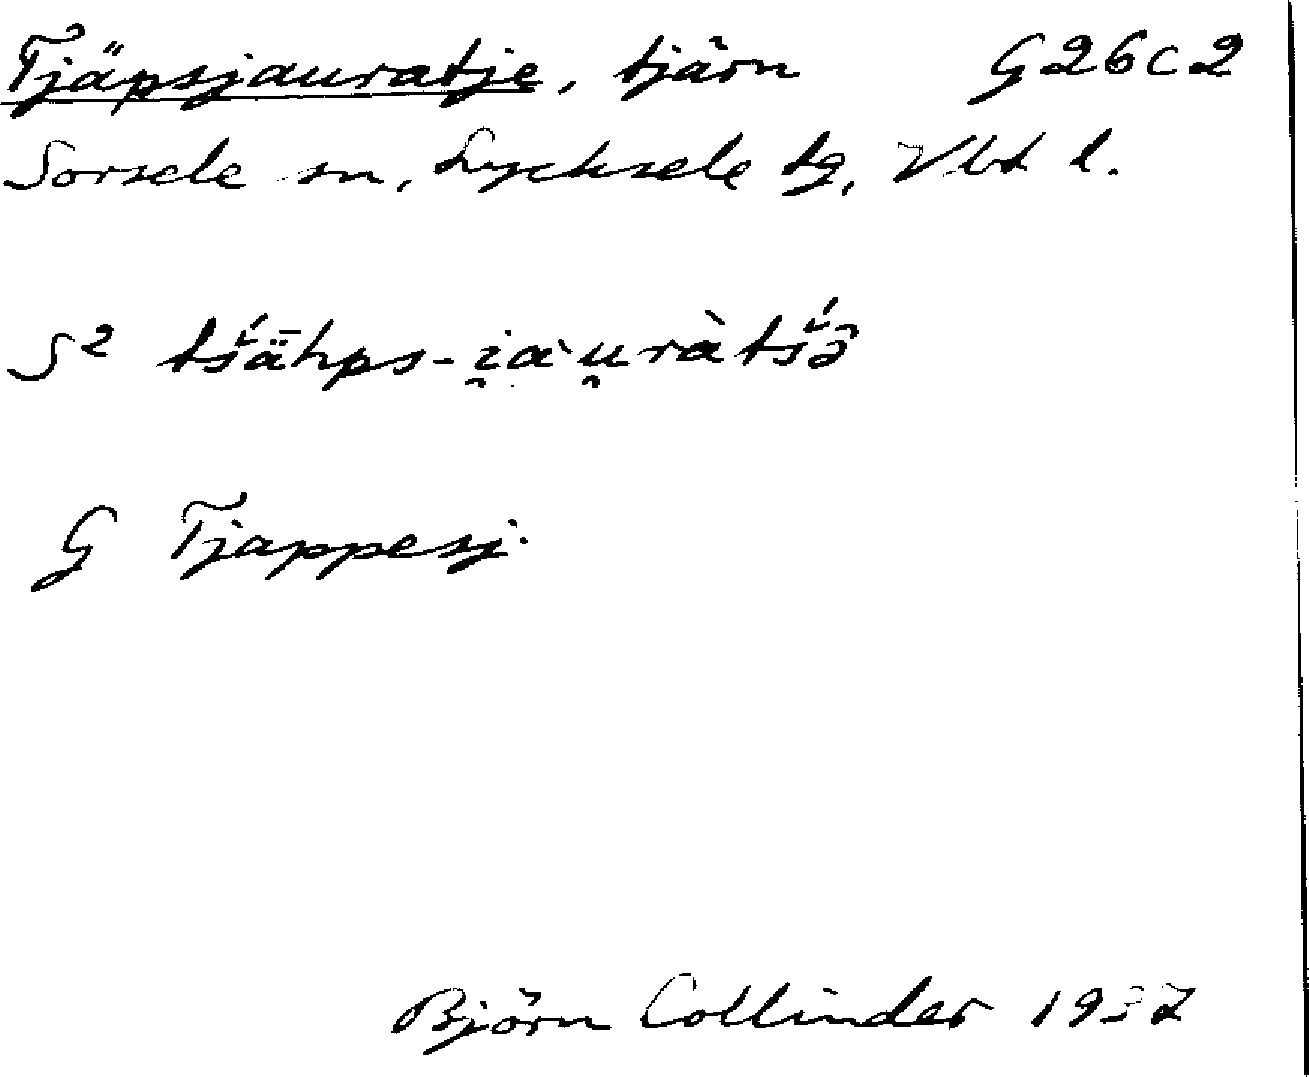 Tjäpsjauratje, tjärn G26c2
Sorsele sn, Lycksele tg, Vbt l.
S² tš́ǟhps-i̯àu̯ràtš́ə̂
G Tjappesj.
Björn Collinder 1937